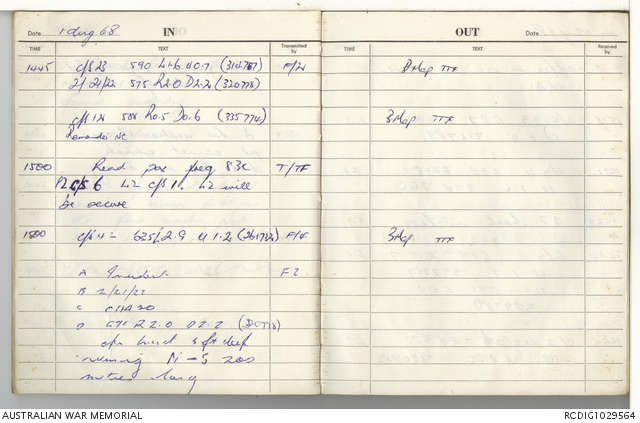 Date 1 Aug 68 IN
TIME TEXT Transmitted by
1445 c/s 23 590 L4.6 U0.7 (314757) F/
2/21/22 575 R2.0 D2.2 (320778)
c/s 12 588 R0.5 D0.6 (335774)
Remainder NC
1500 Read pox freq 83c T/TF
c/s 6 42 c/s 1. 42 will
be secure
1500 c/s 4 = 625 L2.9 U1.2
A Incident F2
B 2/21/22
C
D 575 R2.0 D2.2
5 ft deep
running N-S 200
metres long
OUT
Date
TIME TEXT Received by
8 Rep TTF
3 Rep TTF
3 Rep TTF
AUSTRALIAN WAR MEMORIAL RCDIG1029564